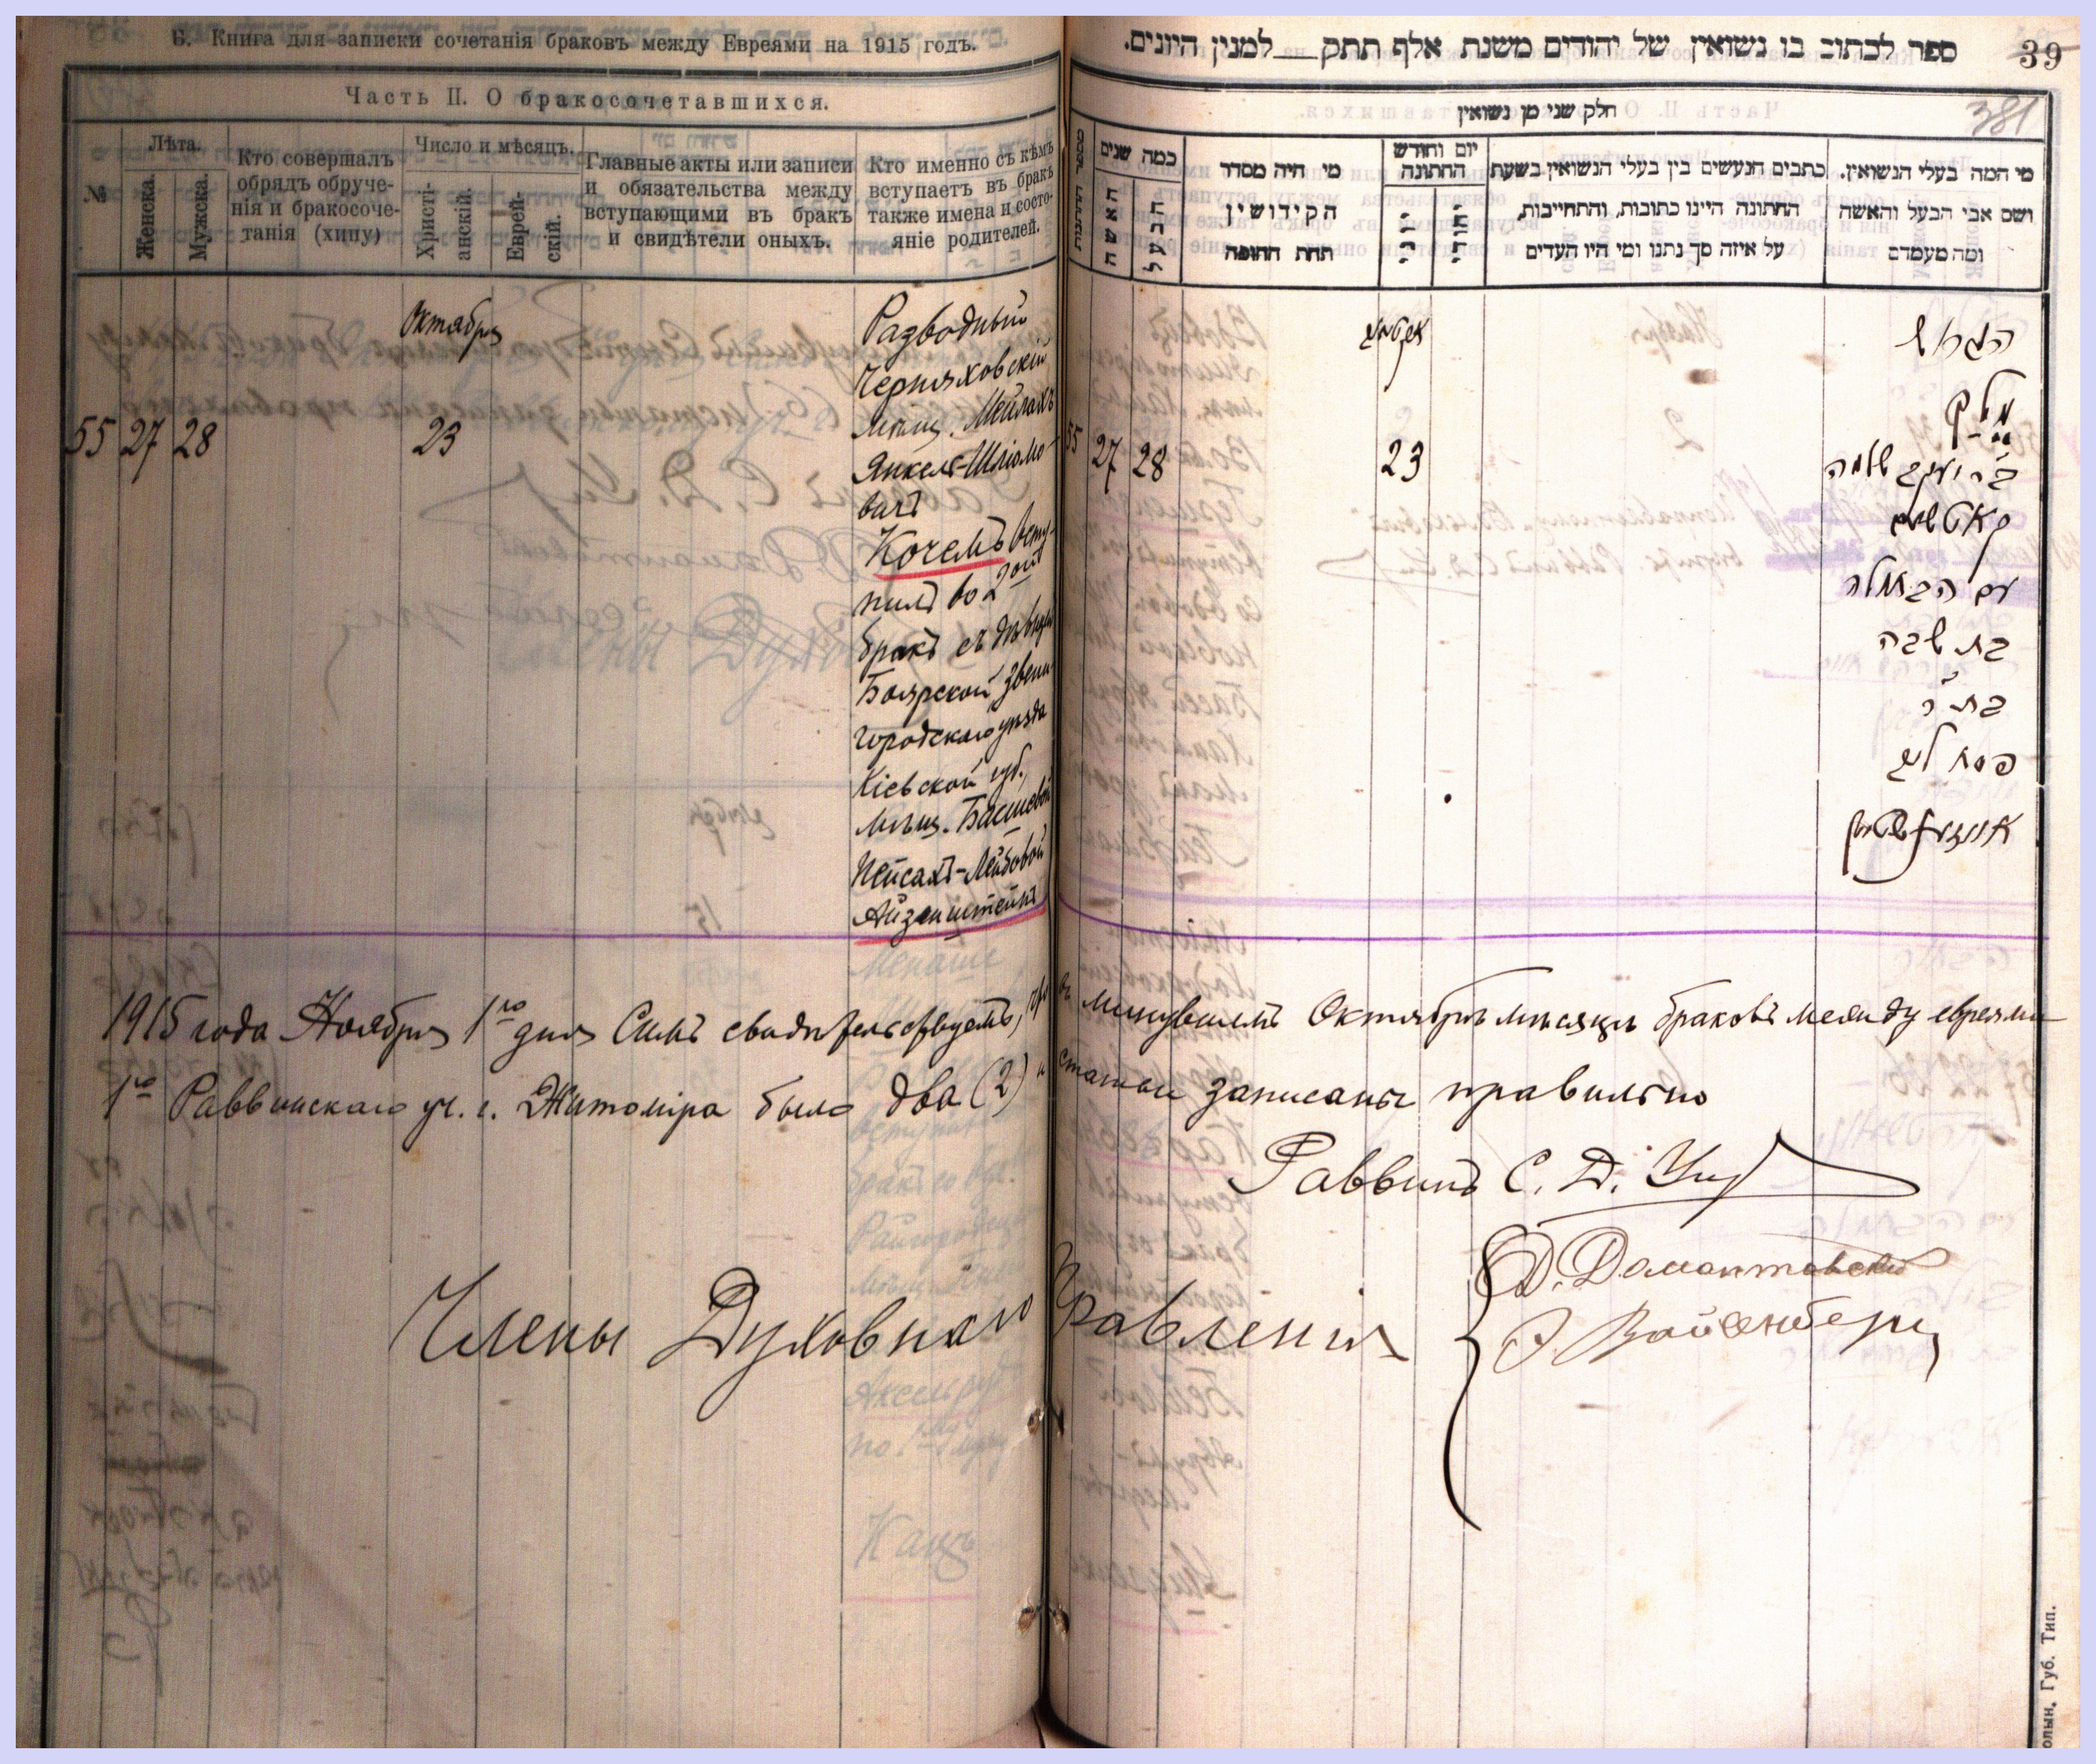 Б. Книга для записки сочетанія браковъ между Евреями на 1915 годъ.
Часть II. О бракосочетавшихся.
№
Лѣта.
Женска.
Мужска.
Кто совершалъ
обрядъ обруче-
нія и бракосоче-
танія (хипу)
Число и мѣсяцъ.
Христі-
анскій.
Еврей-
скій.
Главные акты или записи
и обязательства между
вступающими въ бракъ
и свидѣтели оныхъ.
Кто именно съ кѣмъ
вступаетъ въ бракъ
также имена и состо-
яніе родителей.
55 27 28
Октября
23
Разводный
Черняховскій
мѣщ. Мейлахъ
Янкель-Шліомо-
вичъ
Кочемъ всту-
пилъ во 2ой
бракъ съ дѣвицей
Боярской Звени-
городскаго уѣзда
Кіевской губ.,
мѣщ. Басшевой
Пейсахъ-Лейбовой
Айзенштейнъ
ספר לכתוב בו נשואין של יהודים משנת אלף תתק למנין היונים.
39
381
חלק שני מן נשואין
מספר החתונות
כמה שנים
האשה
הבעל
מי היה מסדר
הקידושין
תחת החופה
יום וחודש
החתונה
כתבים הנעשים בין בעלי הנשואין בשעת
החתונה היינו כתובות, והתחייבות,
על איזה סך נתנו ומי היו העדים
מי המה בעלי הנשואין.
ושם אבי הבעל והאשה
ומה מעמדם
55 27 28
23
הגרוש
מילך
ב״ר יעקב שלמה
עם הבתולה
בת שבה
בת ר׳
פסח ליב
אייזענשטיין
1915 года Ноября 1го дня Симъ свидѣтельствуемъ, что въ минувшемъ Октябрѣ мѣсяцѣ браковъ между евреями
1го Раввинскаго уч. г. Житоміра было два (2) и статьи записаны правильно
Раввинъ С. Д.
Члены Духовнаго Правленія
Д. Домонтовскій
Вайсенбергъ
олын. Губ. Тип.